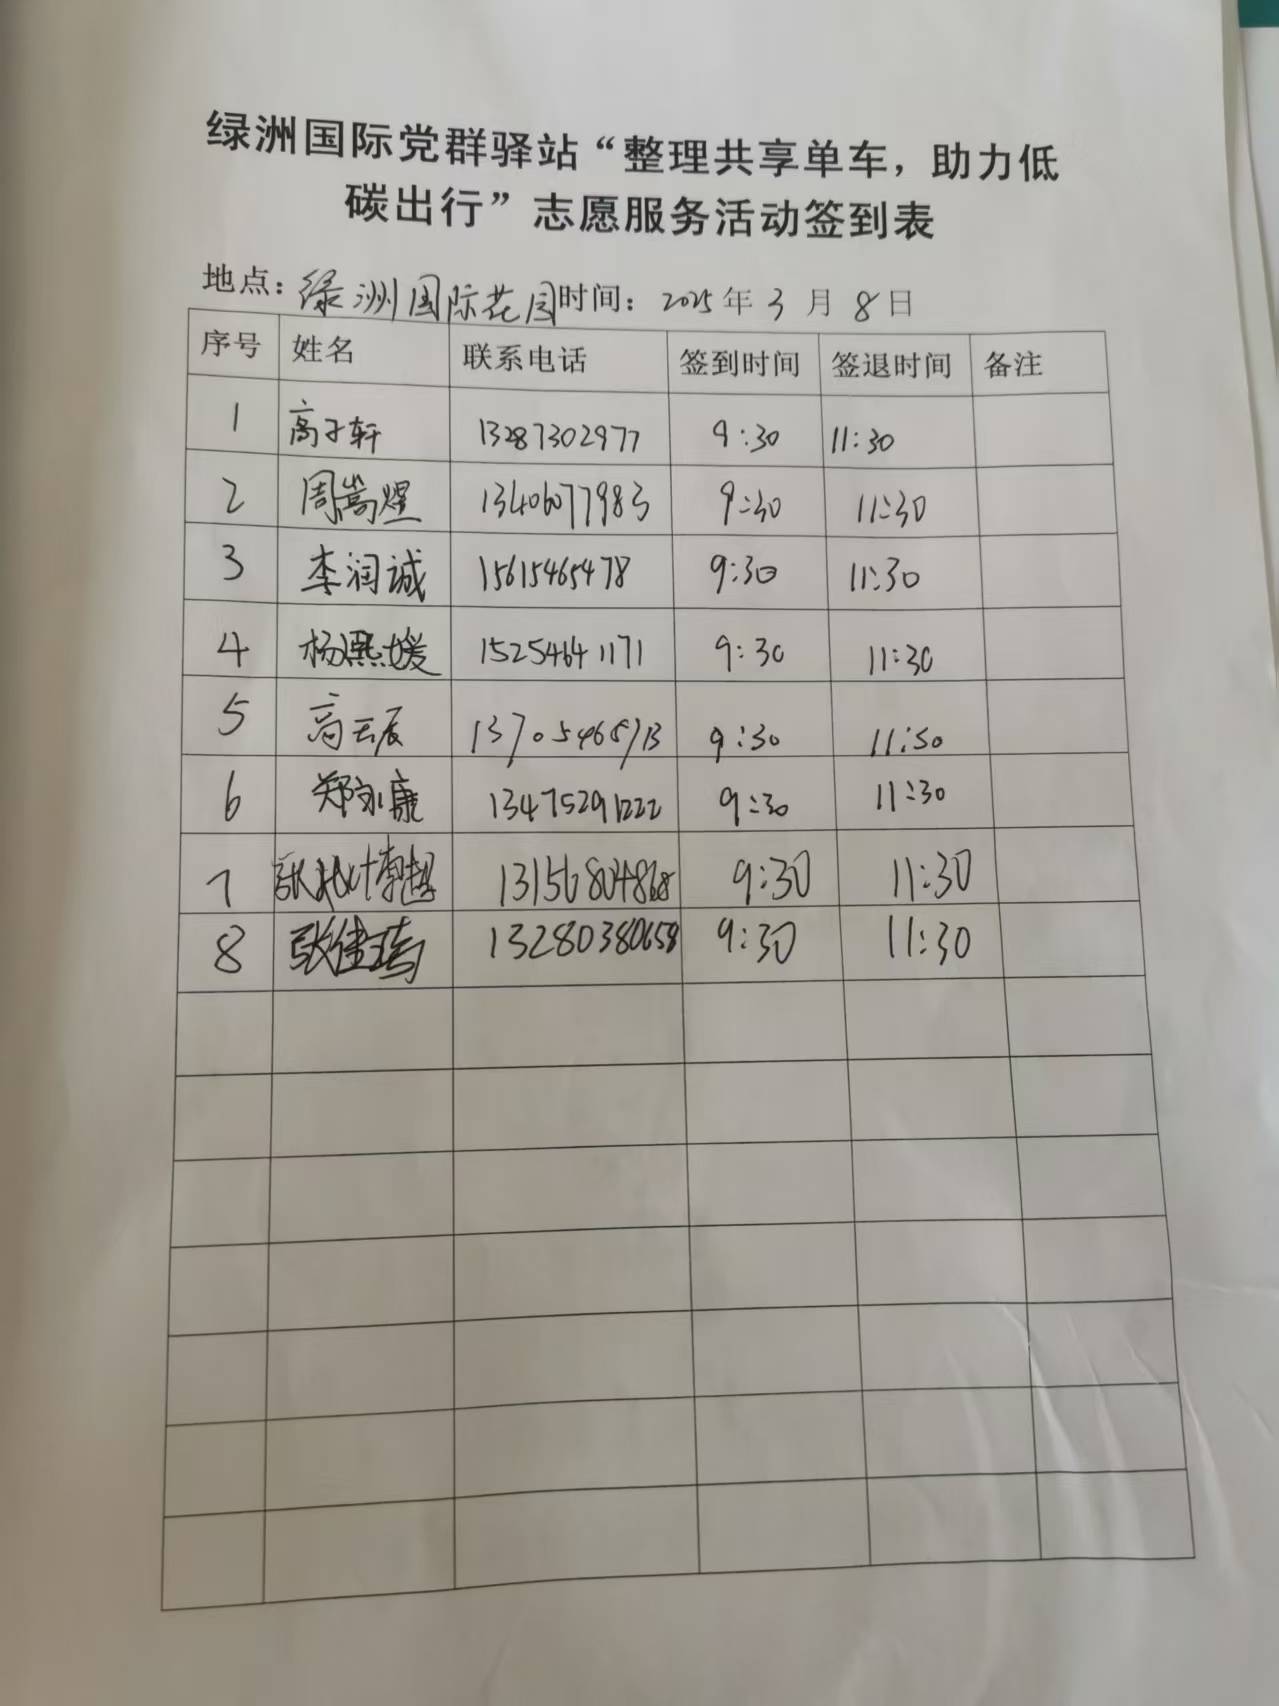 绿洲国际党群驿站“整理共享单车，助力低
碳出行”志愿服务活动签到表
地点：绿洲国际花园时间：2025年3月8日
序号 姓名 联系电话 签到时间 签退时间 备注
1 高子轩 13287302977 9:30 11:30
2 周嵩煜 13406077983 9:30 11:30
3 李润诚 15615465478 9:30 11:30
4 杨熙媛 15254641171 9:30 11:30
5 高云辰 13705468713 9:30 11:50
6 郑永康 13475291222 9:30 11:30
7 13156804868 9:30 11:30
8 13280380658 9:30 11:30